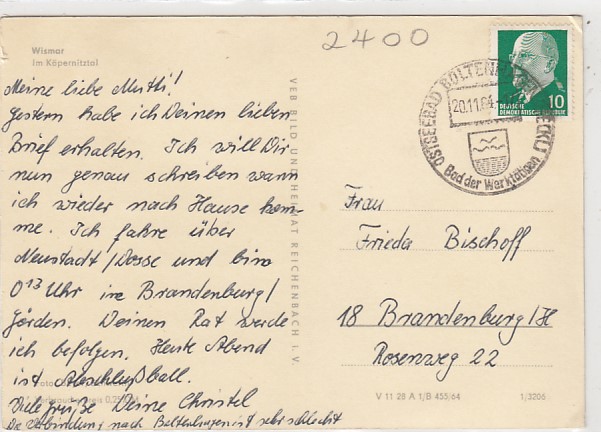 2400
Wismar
Im Köpernitztal
Meine liebe Mutti!
Gestern habe ich Deinen lieben
Brief erhalten. Ich will Dir
nun genau schreiben wann
ich wieder nach Hause kom-
me. Ich fahre über
Neustadt/Dosse und bin
0¹³ Uhr in Brandenburg/
Görden. Deinen Rat werde
ich befolgen. Heute Abend
ist Abschlußball.
Viele grüße Deine Christel
Die Verbindung nach Boltenhagen ist sehr schlecht
VEB BILD UND HEIMAT REICHENBACH I. V.
OSTSEEBAD BOLTENHAGEN (MECKL)
20.11.64
Bad der Werktätigen
DEUTSCHE
DEMOKRATISCHE REPUBLIK
10
Frau
Frieda Bischoff
18 Brandenburg/H
Rosenweg 22
V 11 28 A 1/B 455/64
1/3206